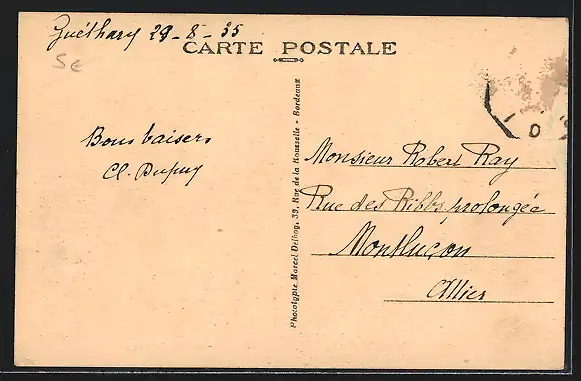 Guéthary 29-8-35
CARTE POSTALE
5€
Bons baisers
Cl. Dupuy
Phototypie Marcel Delboy, 39, Rue de la Rousselle - Bordeaux
Monsieur Robert Ray
Rue des Ribbs prolongée
Montluçon
Allier